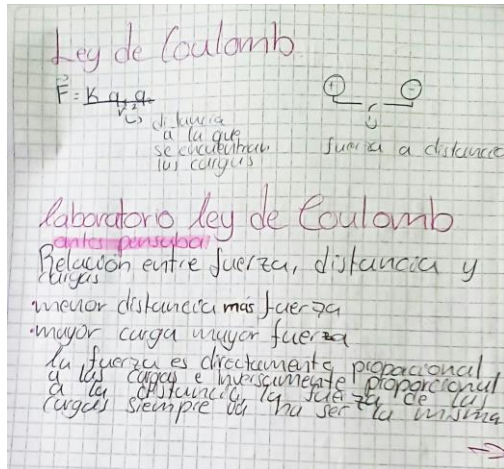 Ley de Coulomb
F = K q₁ q₂
r²
distancia
a la que
se encuentran
las cargas
+ -
r
fuerza a distancia
laboratorio ley de Coulomb
antes pensaba
Relación entre fuerza, distancia y
cargas
·menor distancia más fuerza
·mayor carga mayor fuerza
la fuerza es directamente proporcional
a las cargas e inversamente proporcional
a la distancia, la fuerza de las
cargas siempre va ha ser la misma
→